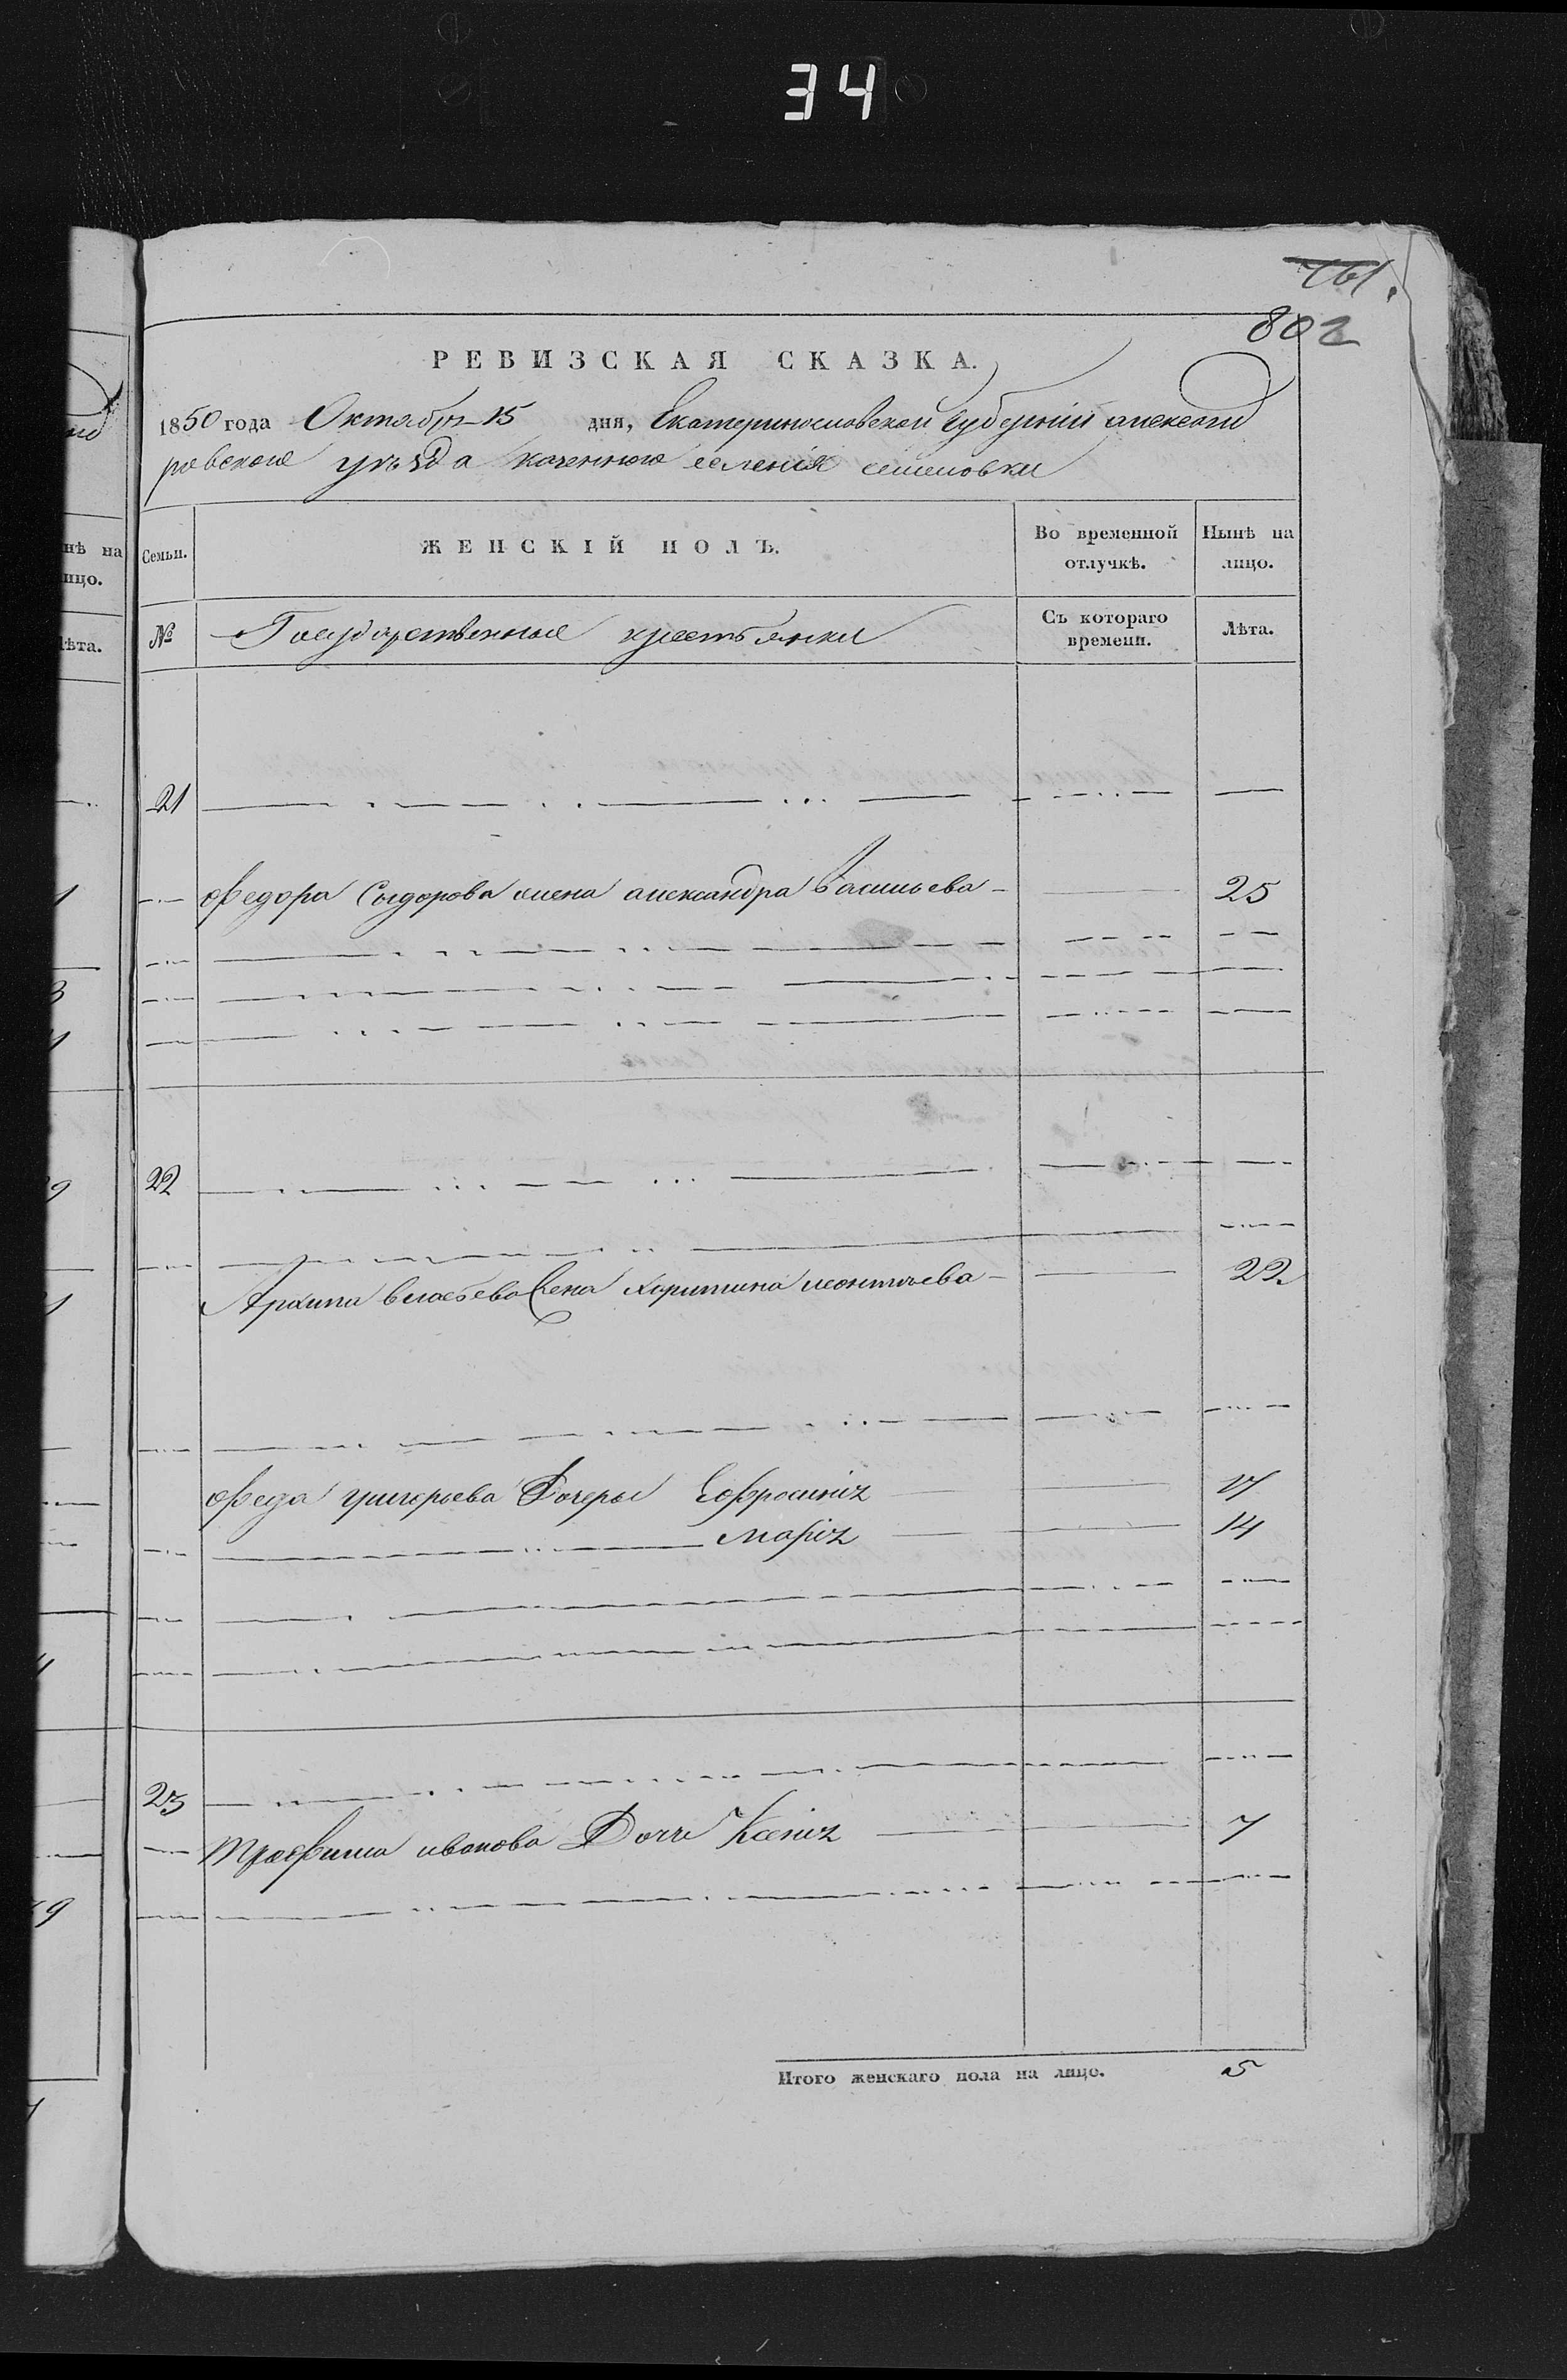 34
761.
802
РЕВИЗСКАЯ СКАЗКА.
1850 года Октября 15 дня, Екатеринославской губернии александ
ровского уѣзда казенного селенія семеновки
Семьи. ЖЕНСКІЙ ПОЛЪ. Во временной отлучкѣ. Нынѣ на лицо.
№ Государственные крестьянки Съ котораго времени. Лѣта.
21
Федора Сыдорова жена александра Васильева 25
22
Архипа жена Харитина леонтьева 22
Федора григорьева Дочеры Ефросинія 17
Марія 14
23
Трофима иванова Дочь Ксенія 7
Итого женскаго пола на лицо. 5